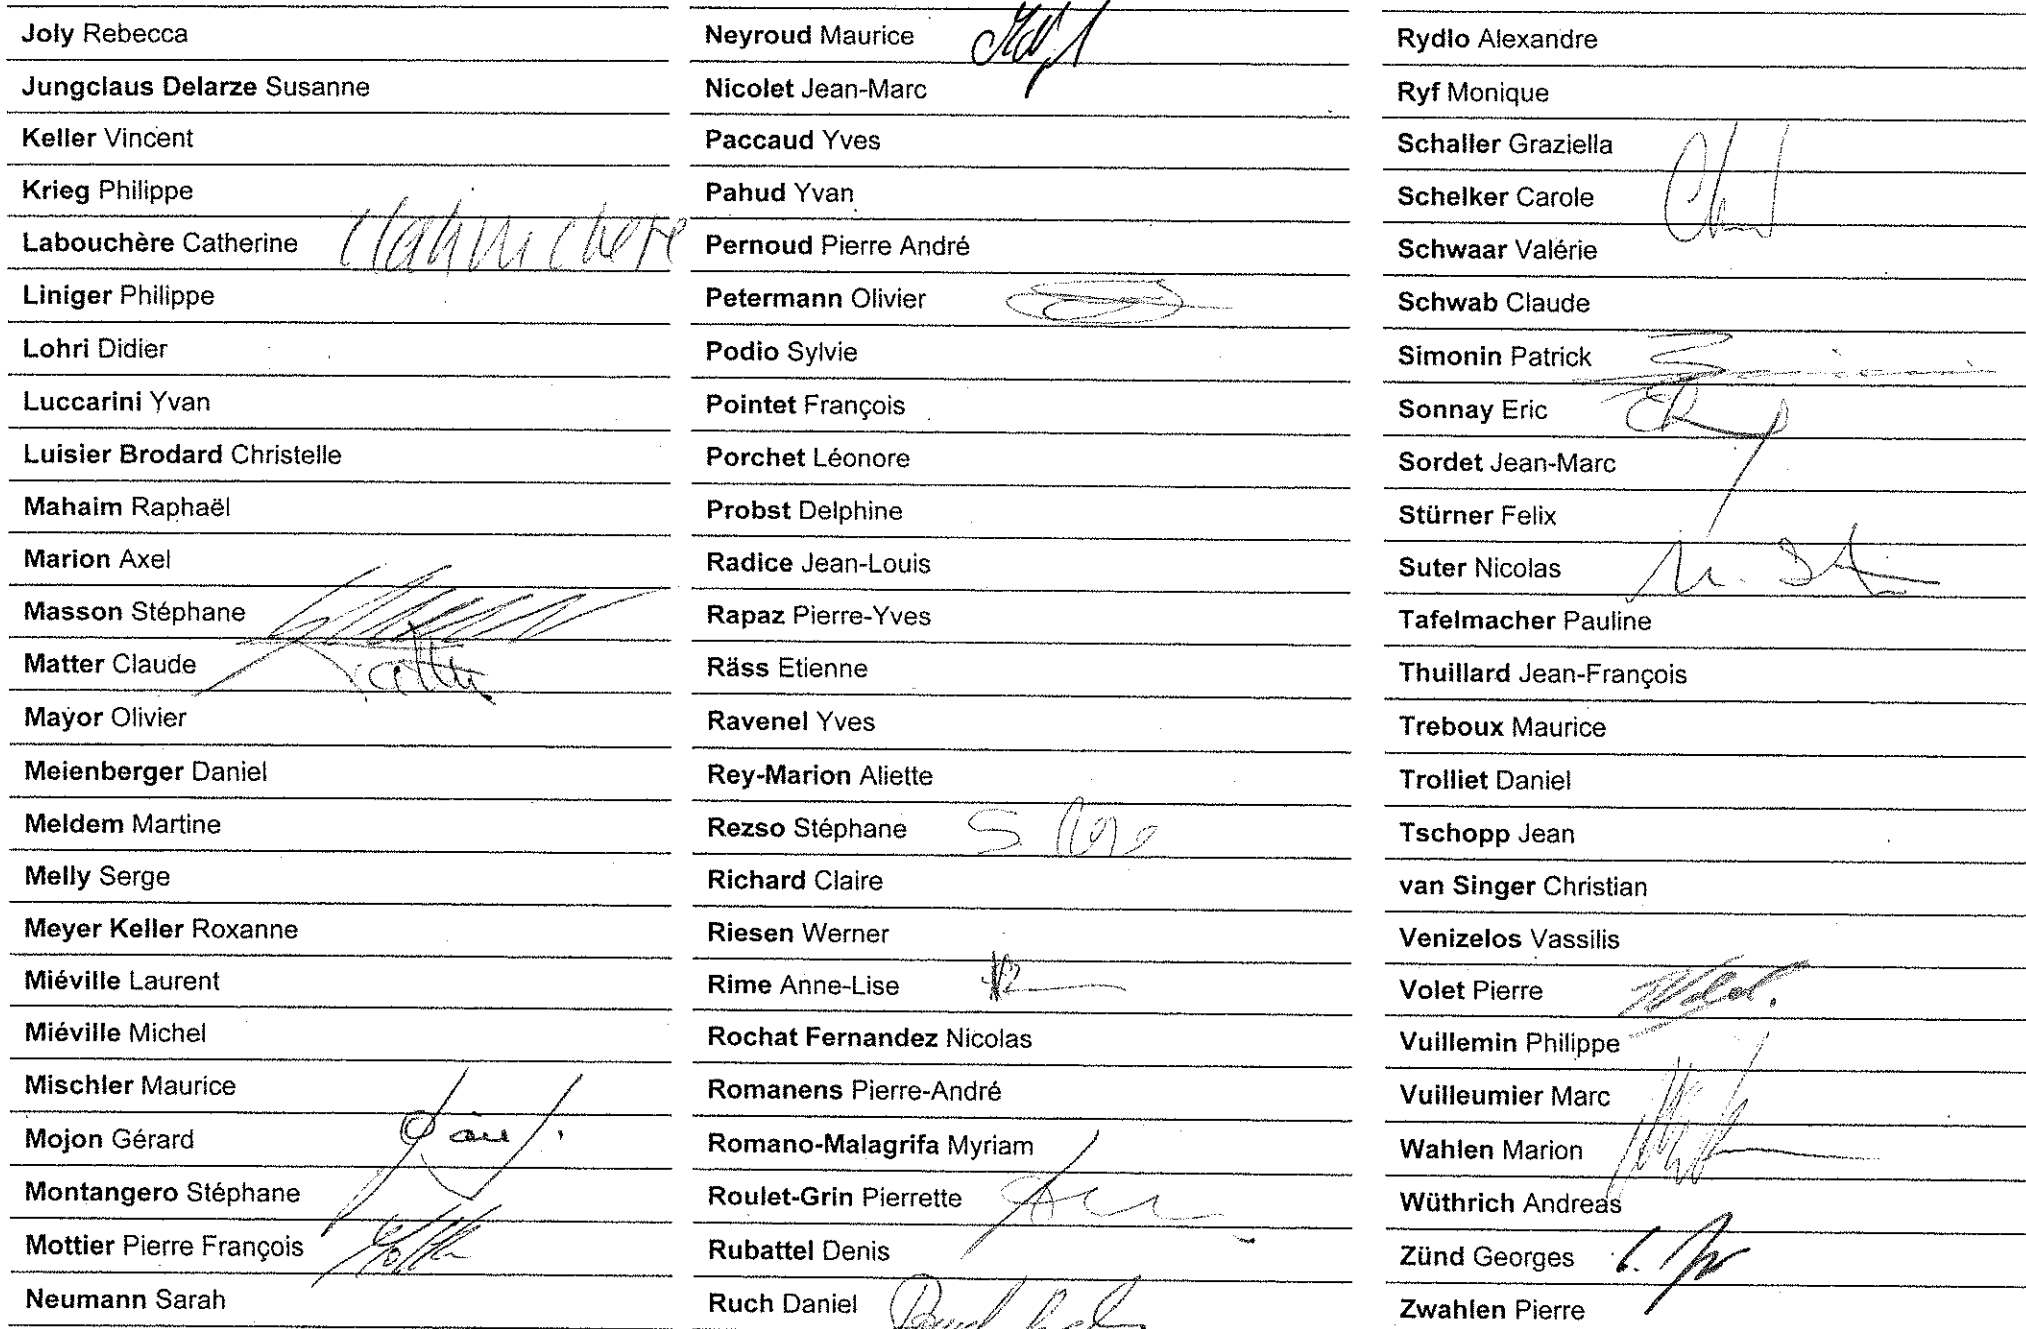 Joly Rebecca
Jungclaus Delarze Susanne
Keller Vincent
Krieg Philippe
Labouchère Catherine Labouchere
Liniger Philippe
Lohri Didier
Luccarini Yvan
Luisier Brodard Christelle
Mahaim Raphaël
Marion Axel
Masson Stéphane
Matter Claude
Mayor Olivier
Meienberger Daniel
Meldem Martine
Melly Serge
Meyer Keller Roxanne
Miéville Laurent
Miéville Michel
Mischler Maurice
Mojon Gérard
Montangero Stéphane
Mottier Pierre François
Neumann Sarah
Neyroud Maurice
Nicolet Jean-Marc
Paccaud Yves
Pahud Yvan
Pernoud Pierre André
Petermann Olivier
Podio Sylvie
Pointet François
Porchet Léonore
Probst Delphine
Radice Jean-Louis
Rapaz Pierre-Yves
Räss Etienne
Ravenel Yves
Rey-Marion Aliette
Rezso Stéphane
Richard Claire
Riesen Werner
Rime Anne-Lise
Rochat Fernandez Nicolas
Romanens Pierre-André
Romano-Malagrifa Myriam
Roulet-Grin Pierrette
Rubattel Denis
Ruch Daniel
Rydlo Alexandre
Ryf Monique
Schaller Graziella
Schelker Carole
Schwaar Valérie
Schwab Claude
Simonin Patrick
Sonnay Eric
Sordet Jean-Marc
Stürner Felix
Suter Nicolas
Tafelmacher Pauline
Thuillard Jean-François
Treboux Maurice
Trolliet Daniel
Tschopp Jean
van Singer Christian
Venizelos Vassilis
Volet Pierre
Vuillemin Philippe
Vuilleumier Marc
Wahlen Marion
Wüthrich Andreas
Zünd Georges
Zwahlen Pierre